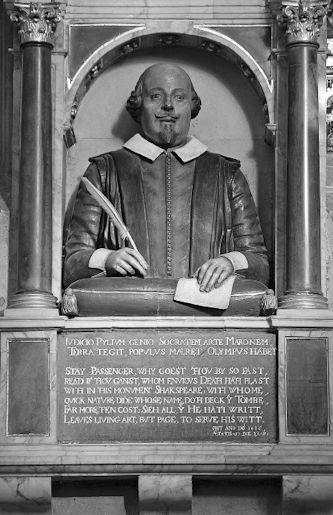 IVDICIO PYLIVM GENIO SOCRATEM, ARTE MARONEM,
TERRA TEGIT, POPVLVS MÆRET, OLYMPVS HABET
STAY PASSENGER, WHY GOEST THOV BY SO FAST,
READ IF THOV CANST, WHOM ENVIOVS DEATH HATH PLAST
WITH IN THIS MONVMENT SHAKSPEARE: WITH WHOME,
QVICK NATVRE DIDE: WHOSE NAME, DOTH DECK Y TOMBE,
FAR MORE, THEN COST: SIEH ALL, Y HE HATH WRITT,
LEAVES LIVING ART, BVT PAGE, TO SERVE HIS WITT.
ANO DO 1616
ÆTATIS DIE